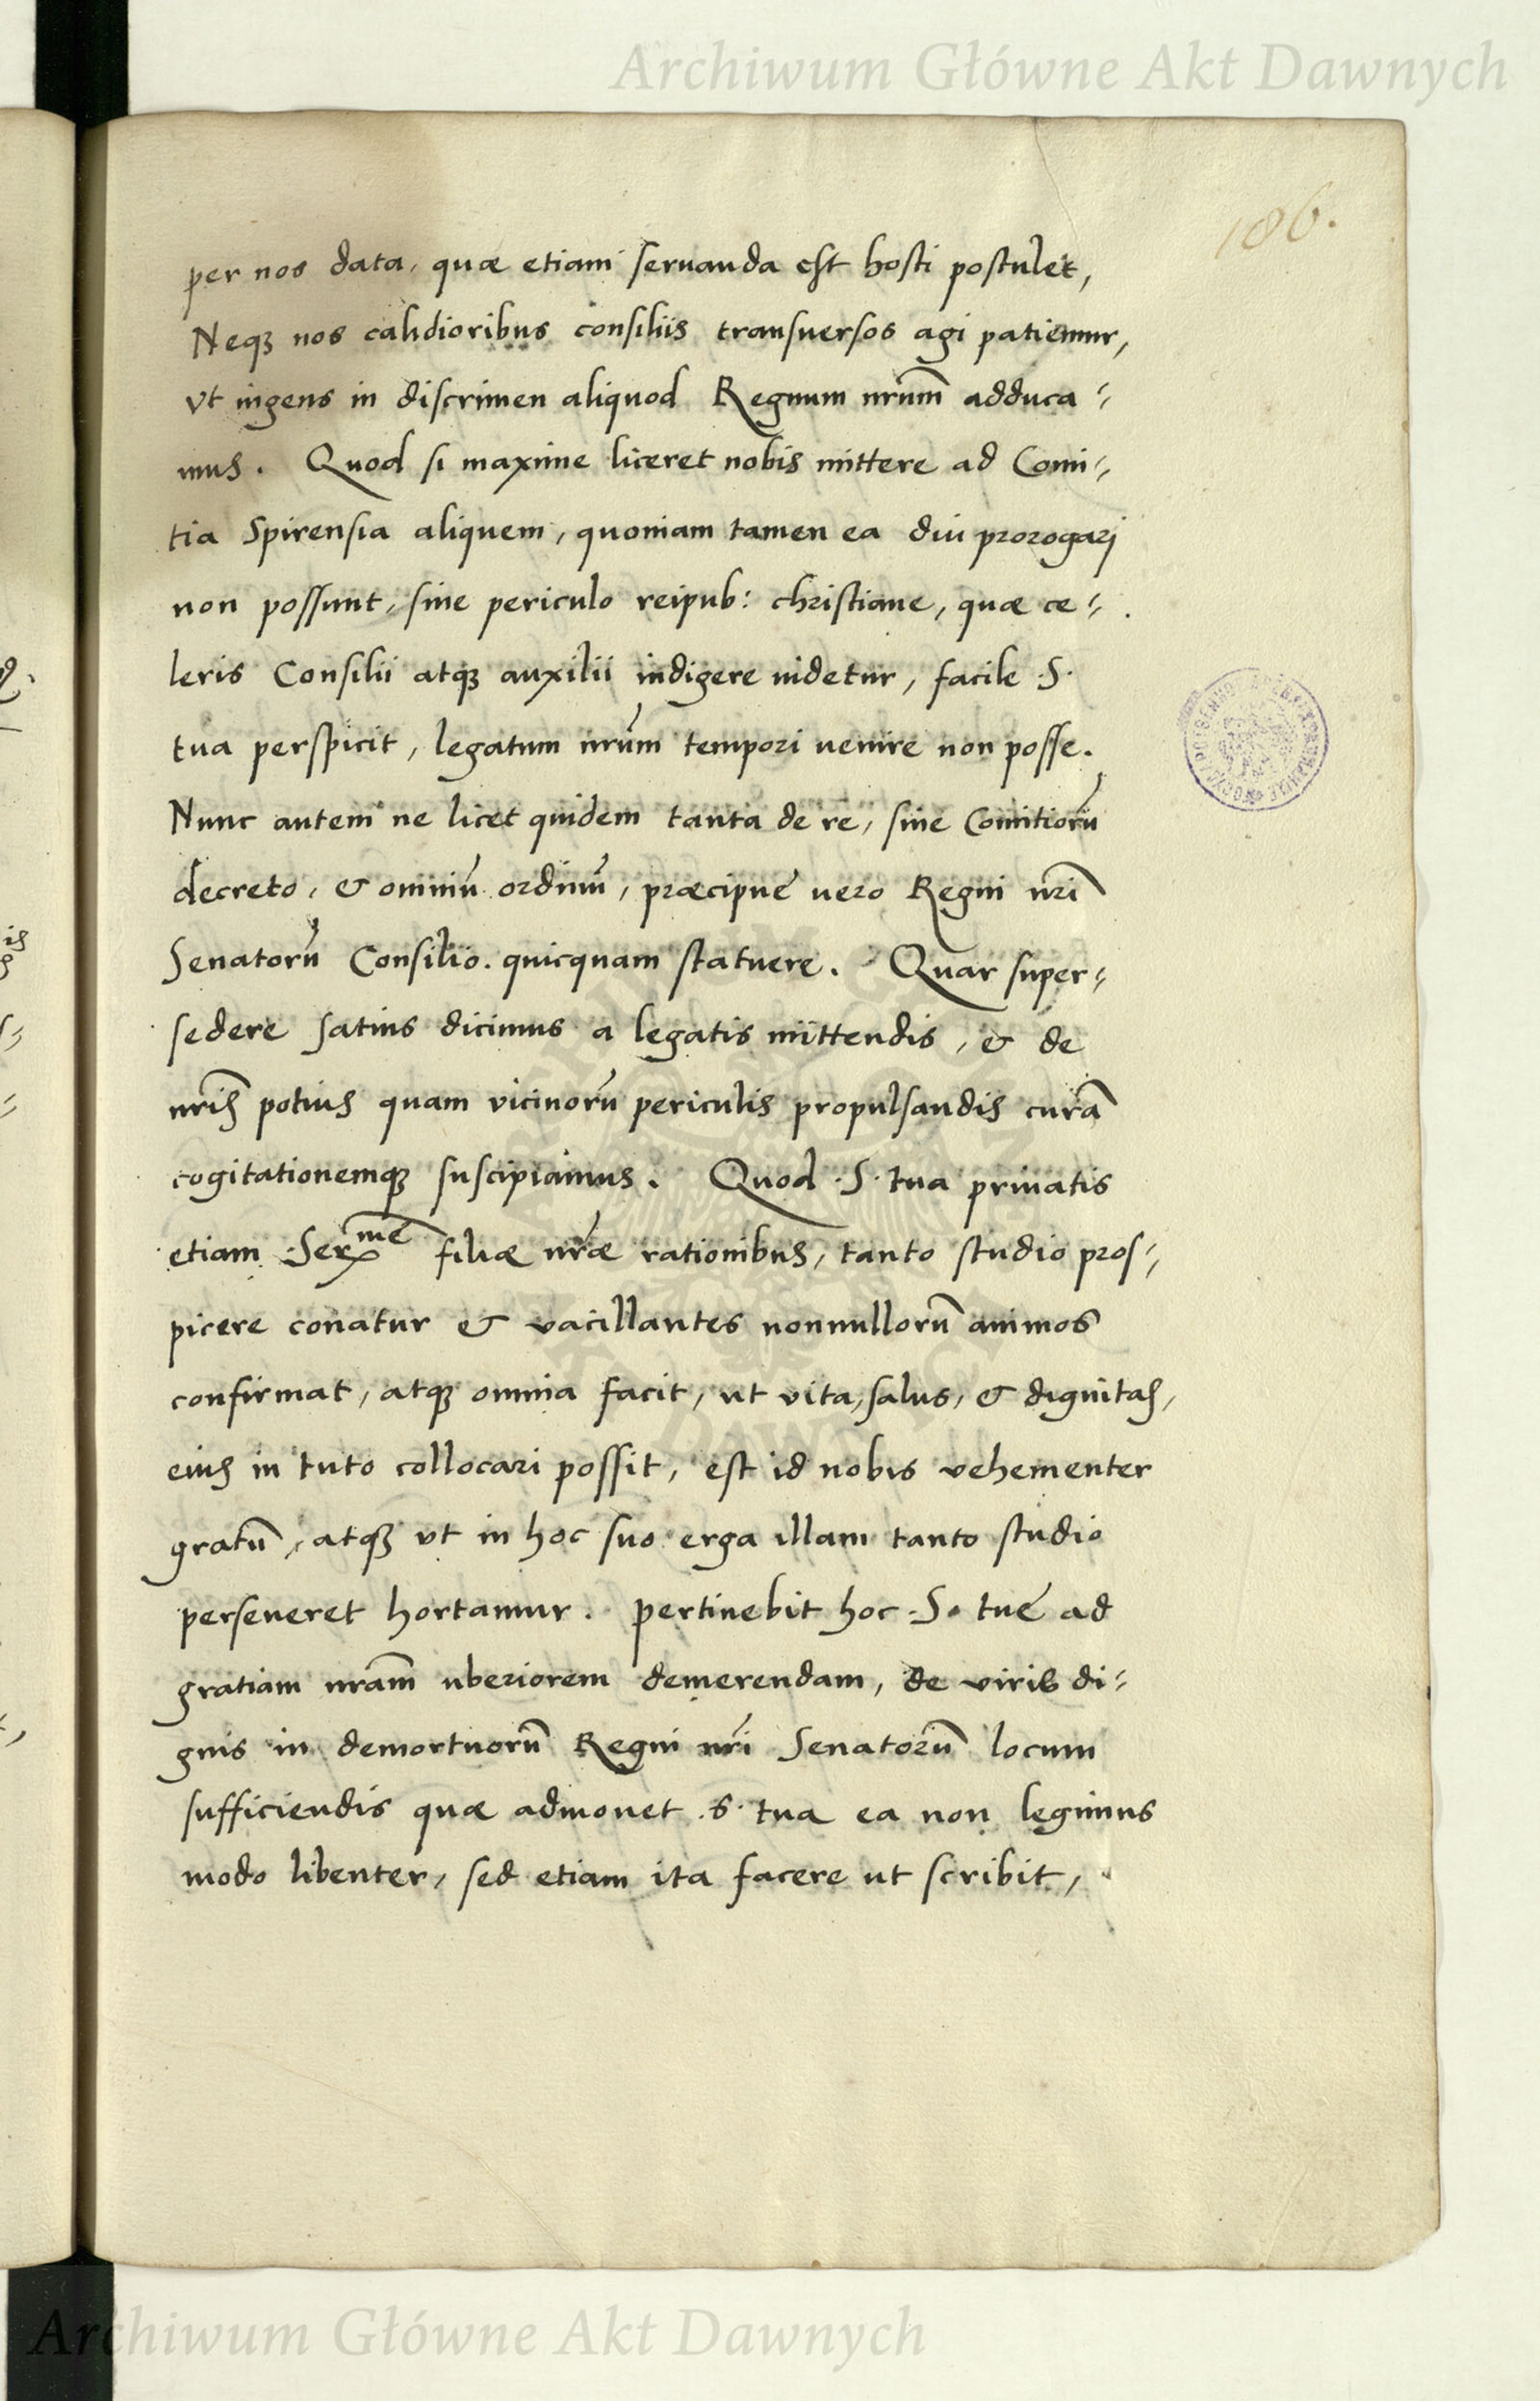 Archiwum Główne Akt Dawnych
186.
per nos data, quæ etiam seruanda est hosti postulet,
Neqꝫ nos calidioribus consiliis transuersos agi patiemur,
vt ingens in discrimen aliquod Regnum nr̄um adduca⸗
mus. Quod si maxime liceret nobis mittere ad Comi⸗
tia Spirensia aliquem, quoniam tamen ea diu prorogari
non possunt, sine periculo reipub: christiane, quæ ce⸗
leris Consilii atqꝫ auxilii indigere uidetur, facile .S.
tua perspicit, legatum nr̄um tempori uenire non posse.
Nunc autem ne licet quidem tanta de re, sine Comitiorū
decreto, & omniū ordinū, præcipue vero Regni nr̄i
Senatorū Consilio. quicquam statuere. Quar super⸗
sedere satius dicimus a legatis mittendis, & de
nr̄is potius quam vicinorū periculis propulsandis curā
cogitationemqꝫ suscipiamus. Quod .S. tua priuatis
etiam .Ser^me filiæ nr̄æ rationibus, tanto studio pros⸗
picere conatur & vacillantes nonnullorū animos
confirmat, atqꝫ omnia facit, ut vita, salus, & dignitas,
eius in tuto collocari possit, est id nobis vehementer
gratū, atqꝫ vt in hoc suo erga illam tanto studio
perseueret hortamur. pertinebit hoc .S. tue ad
gratiam nr̄am uberiorem demerendam, de viris di⸗
gnis in demortuorū Regni nr̄i Senatorū locum
sufficiendis quæ admonet .S. tua ea non legimus
modo libenter, sed etiam ita facere ut scribit,
Archiwum Główne Akt Dawnych